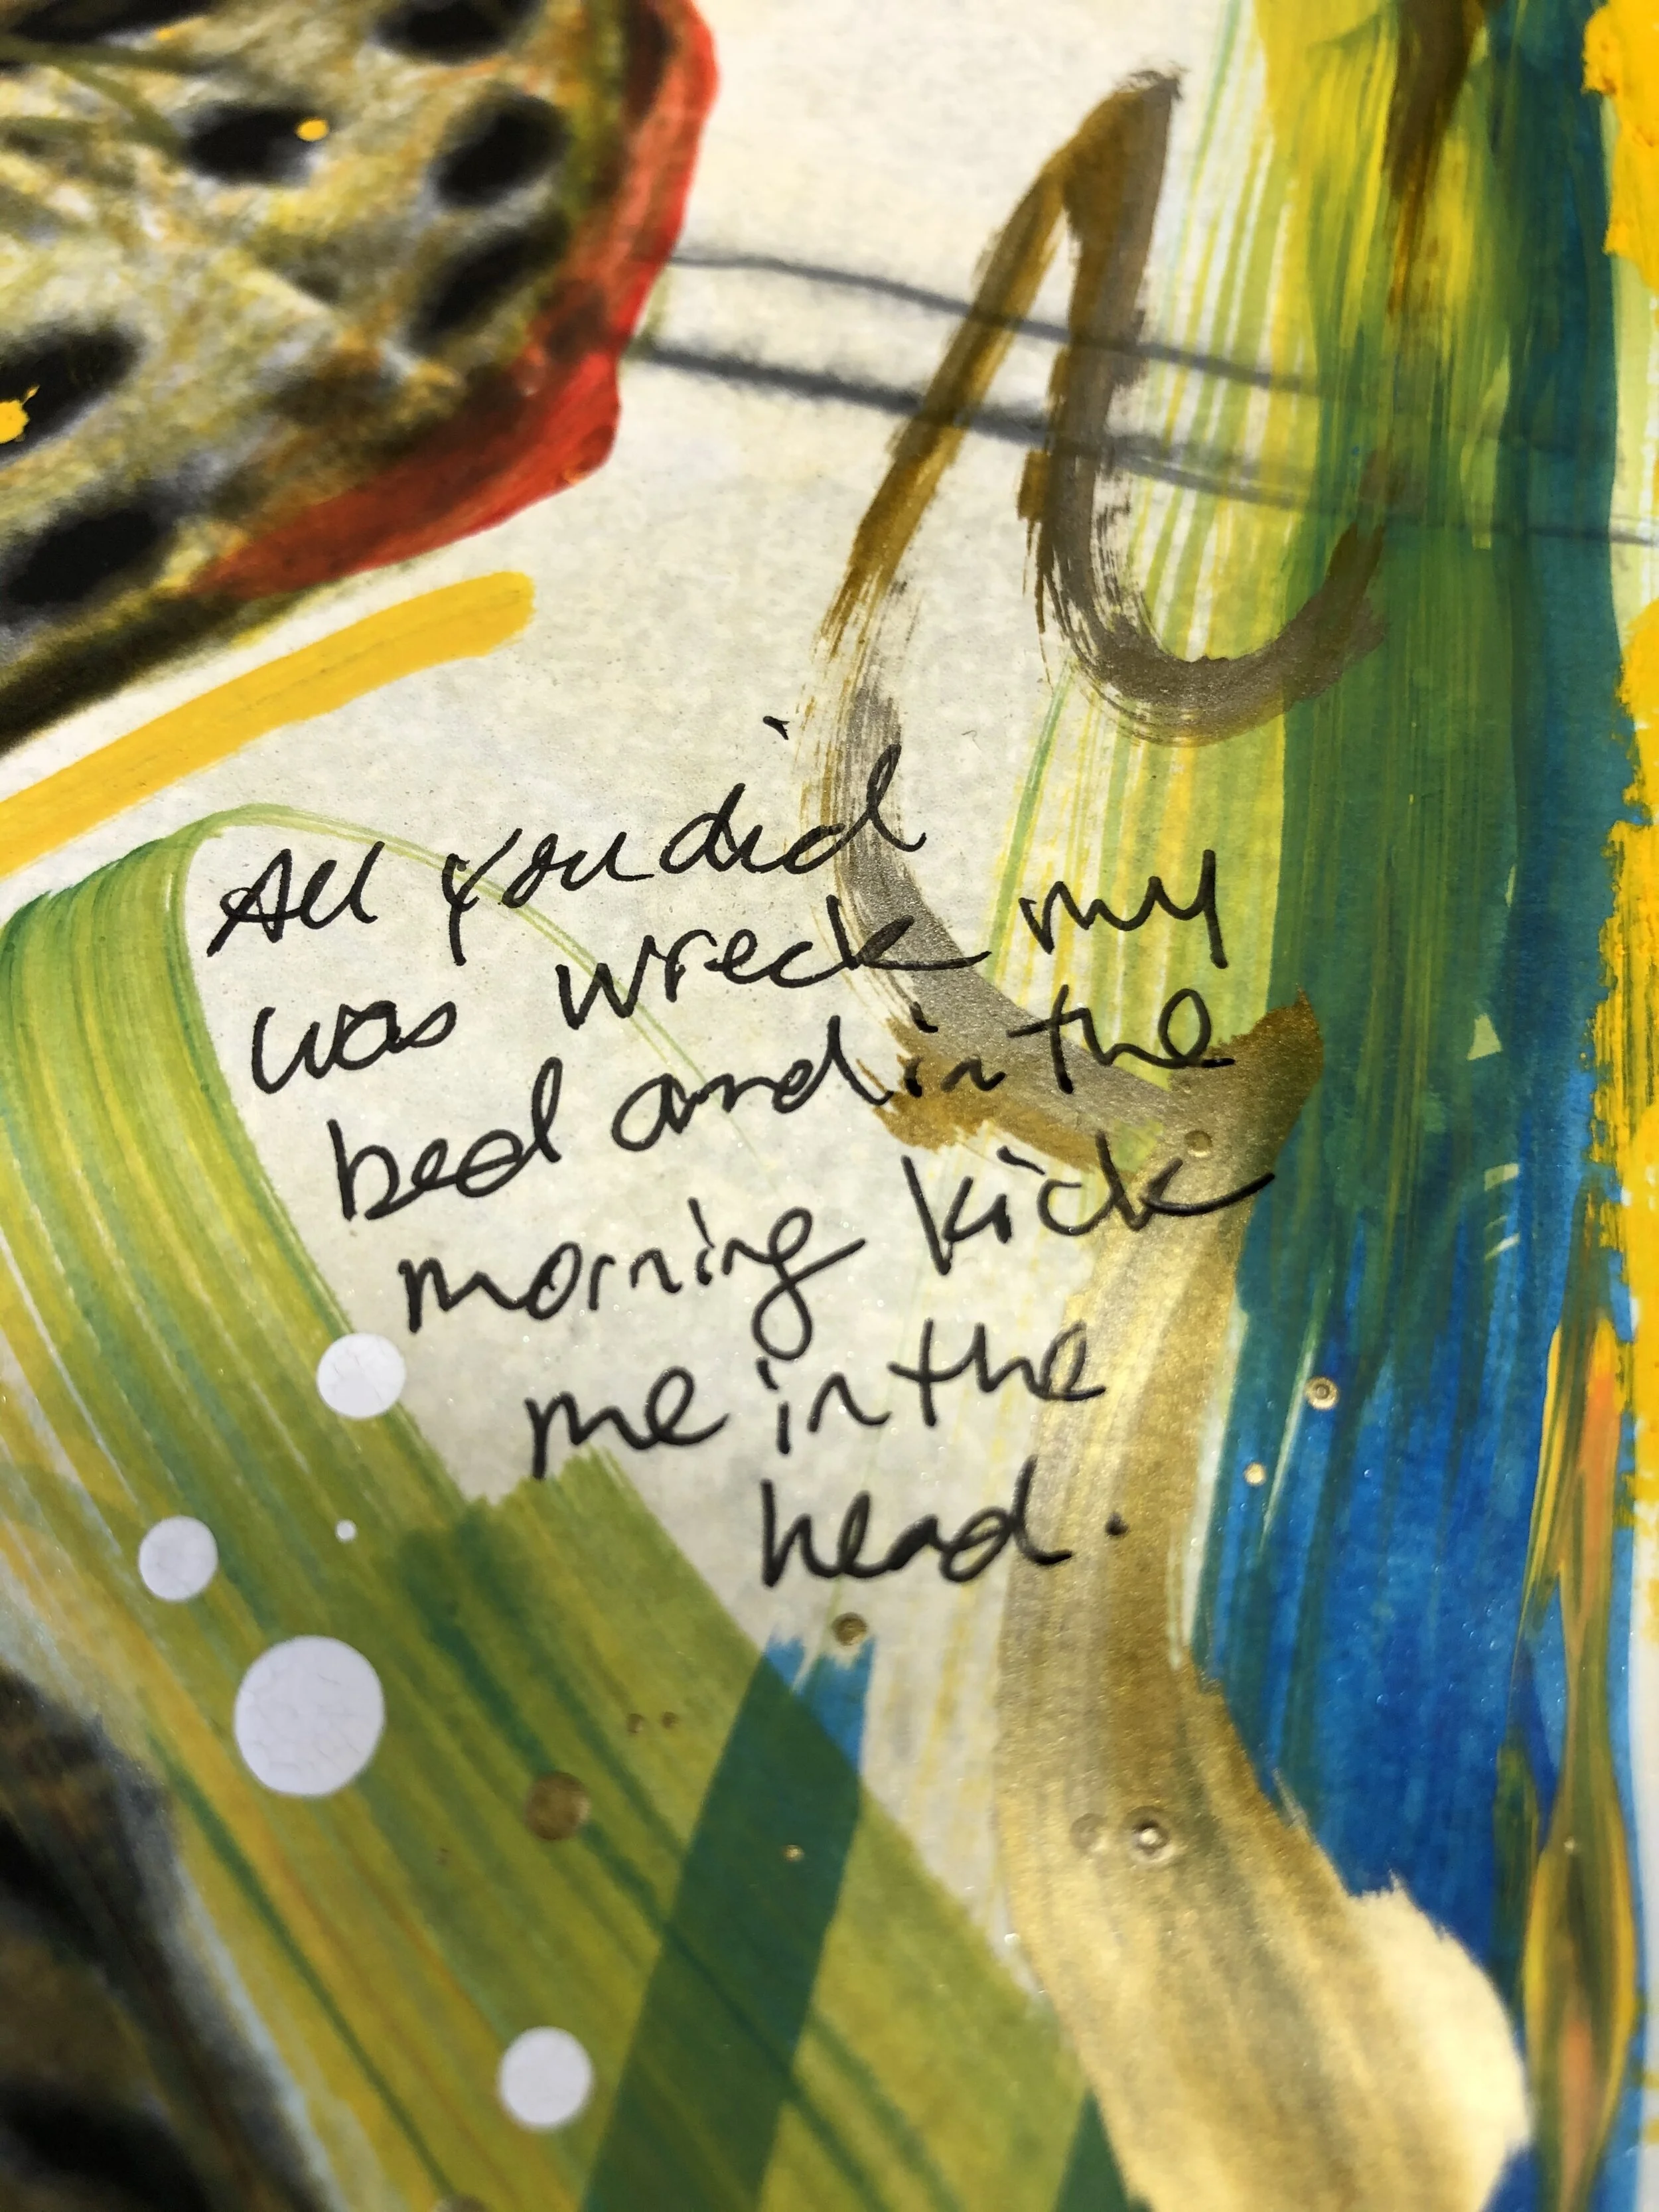 All you did
was wreck my
bed and in the
morning kick
me in the
head.